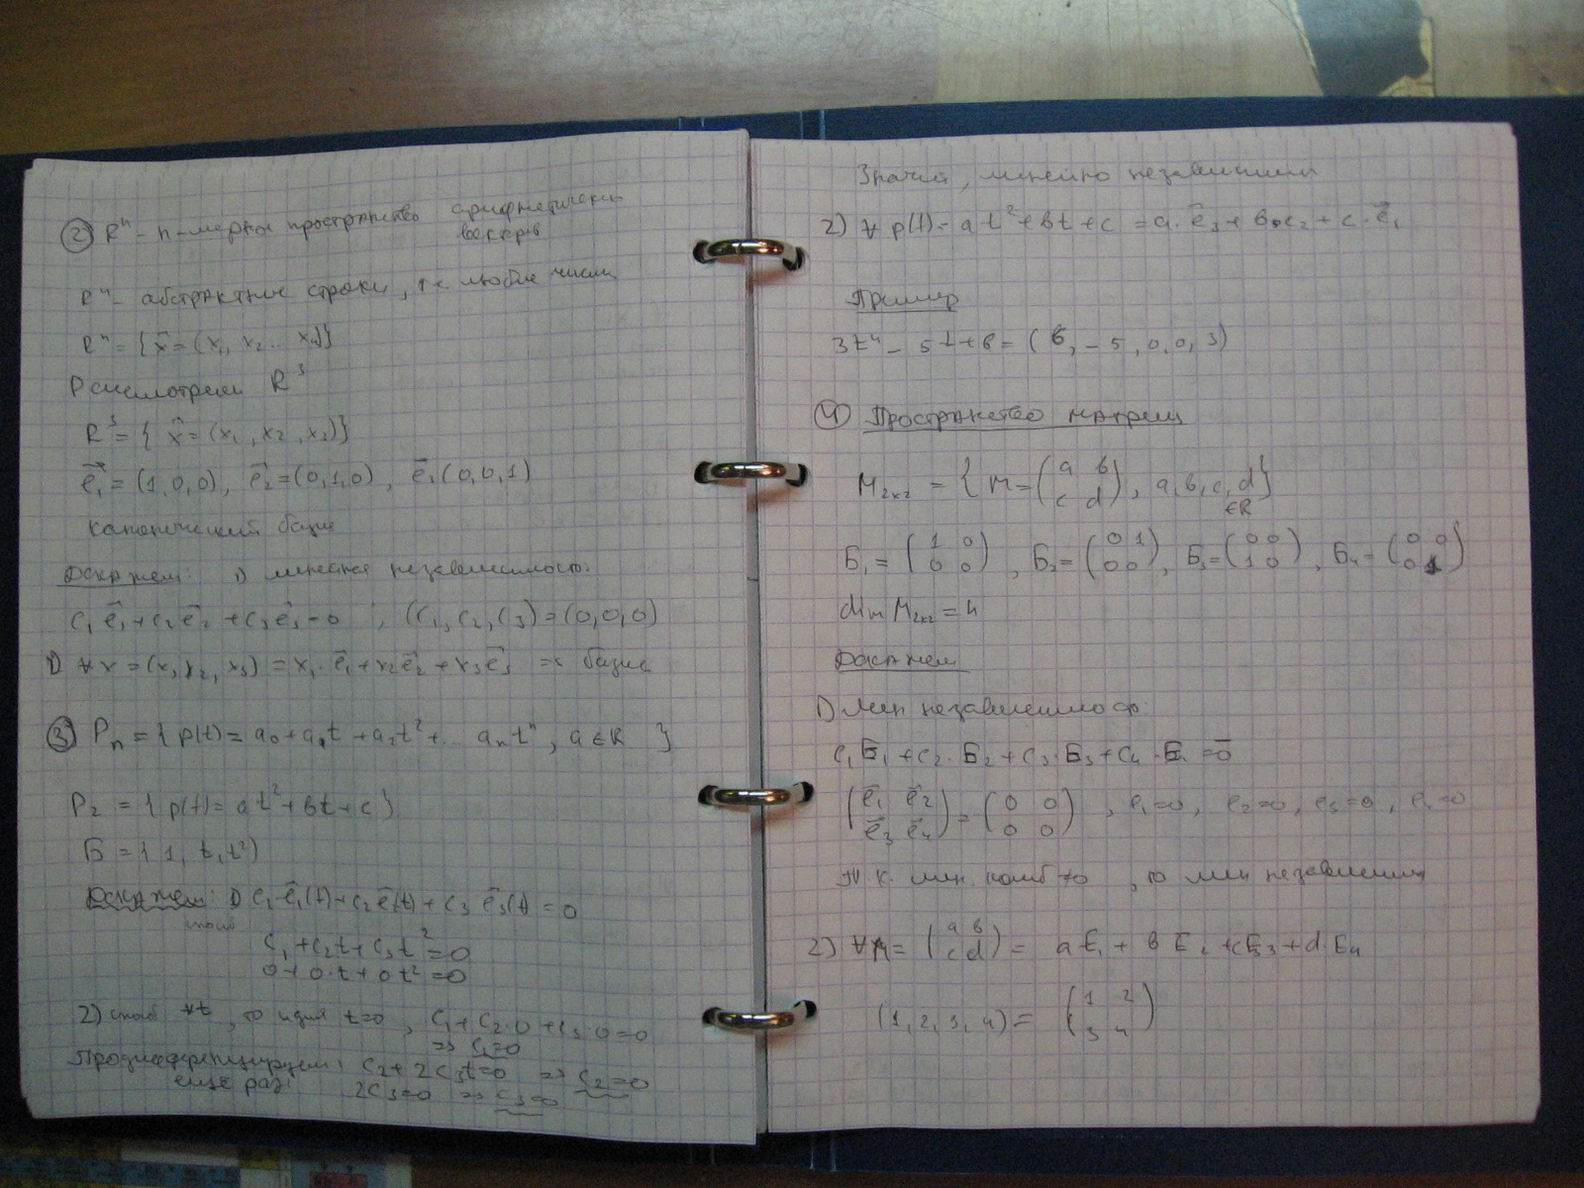 ② Rⁿ - n-мерное пространство арифметических
векторов
Rⁿ - абстрактные строки, т.к. любые числа
Rⁿ = { x̄ = (x₁, x₂ ... xₙ)}
Рассмотрим R³
R³ = { x̄ = (x₁, x₂, x₃)}
e̅₁ = (1,0,0), e̅₂ = (0,1,0), e̅₃ (0,0,1)
канонический базис
Докажем: 1) линейная независимость:
c₁e̅₁ + c₂e̅₂ + c₃e̅₃ = 0 ; (c₁, c₂, c₃) = (0,0,0)
∀x = (x₁ x₂, x₃) = x₁·e̅₁ + x₂e̅₂ + x₃e̅₃ => базис
③ Pₙ = { p(t) = a₀ + a₁t + a₂t² + ... aₙtⁿ, a ∈ R }
P₂ = { p(t) = at² + bt + c}
Б = { 1, t, t²}
Докажем: 1) c₁·e̅₁(t) + c₂e̅₂(t) + c₃ e̅₃(t) = 0
способ
c₁ + c₂t + c₃t² = 0
0 + 0·t + 0t² = 0
2) способ ∀t, t=0, c₁ + c₂·0 + c₃·0 = 0
=> c₁=0
Продифференцируем: c₂ + 2c₃t = 0 => c₂=0
еще раз: 2c₃=0 => c₃=0
Значит, линейно независимы
2) ∀ p(t) = at² + bt + c = a·e̅₃ + b·e₂ + c·e̅₁
Пример
3t⁴ - 5t + 6 = (6, -5, 0, 0, 3)
④ Пространство матриц
M₂ₓ₂ = { M = (a b
c d), a, b, c, d}
∈R
Б₁ = (1 0
0 0), Б₂ = (0 1
0 0), Б₃ = (0 0
1 0), Б₄ = (0 0
0 1}
dim M₂ₓ₂ = 4
Докажем
1) Лин независимость:
c₁Б₁ + c₂·Б₂ + c₃·Б₃ + c₄·Б₄ = 0̅
(e̅₁ e̅₂
e̅₃ e̅₄) = (0 0
0 0), e₁=0, e₂=0, e₃=0, e₄=0
т.к. лин. комб =0, то лин независимы
2) ∀M = (a b
c d) = aE₁ + bE₂ + cE₃ + d·E₄
(1, 2, 3, 4) = (1 2
3 4)